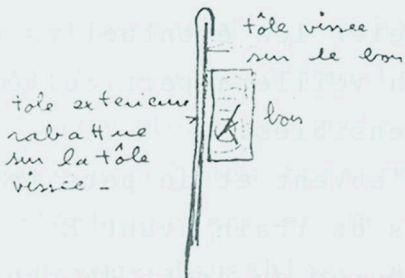 tôle vissée
sur le bois
tôle extérieure
rabattue
sur la tôle
vissée -
bois